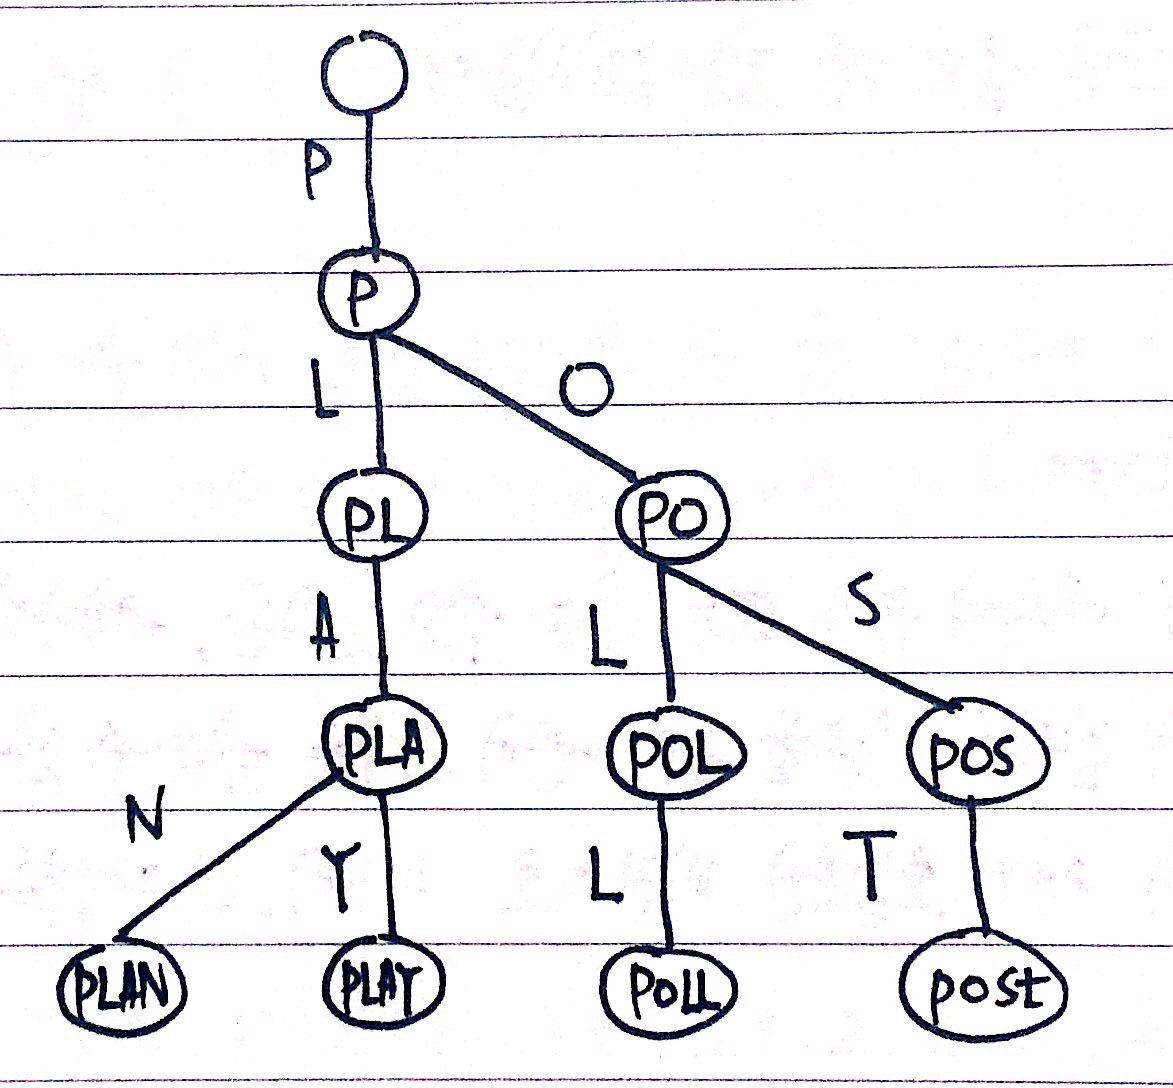 P
P
L O
PL PO
A L S
PLA POL POS
N Y L T
PLAN PLAY POLL post